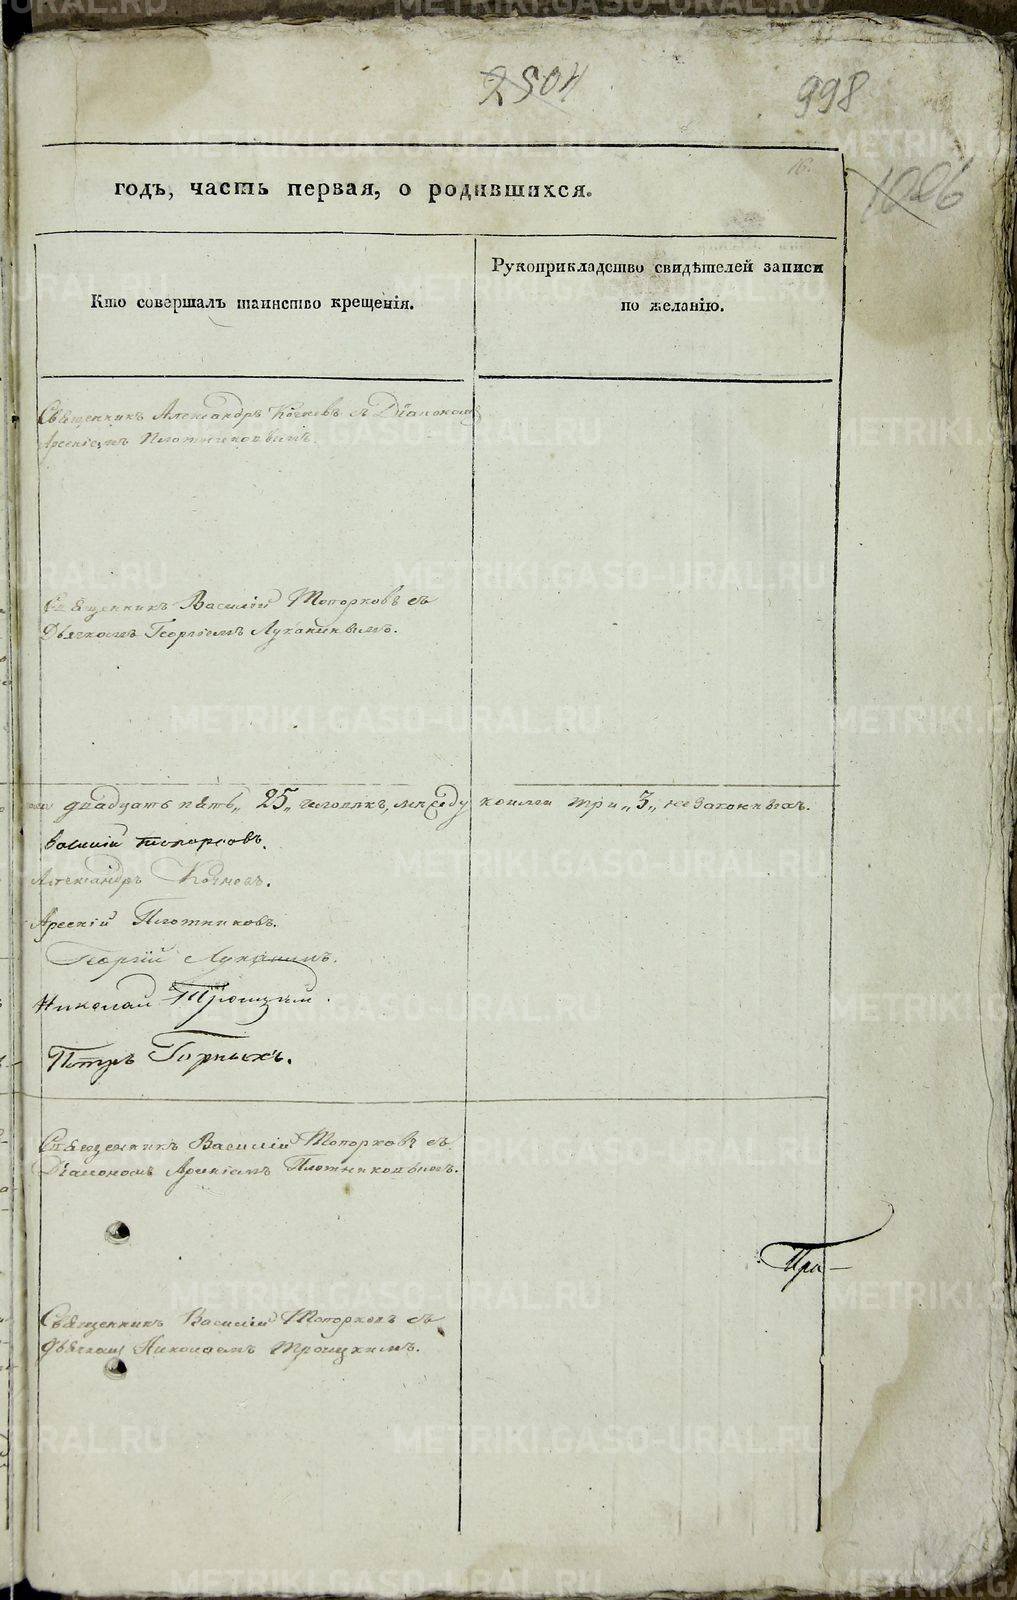 2504
998
1006
16.
годъ, часть первая, о родившихся.
Кто совершалъ таинство крещенія.
Рукоприкладство свидѣтелей записи
по желанію.
Священникъ Александръ Кочневъ съ Діакономъ
Арсеніемъ Плотниковымъ.
Священникъ Василій Топорковъ съ
Дьячкомъ Георгіемъ Луканинымъ.
двадцать пять „25„ человѣкъ, между коими три „3„ незаконныхъ.
Василій Топорковъ.
Александръ Кочневъ.
Арсеній Плотниковъ.
Георгій Луканинъ.
Николай Троицкій.
Петръ Горныхъ.
Священникъ Василій Топорковъ съ
Діакономъ Арсеніемъ Плотниковымъ.
При-
Священникъ Василій Топорковъ съ
Дьячкомъ Николаемъ Троицкимъ.
METRIKI.GASO-URAL.RU